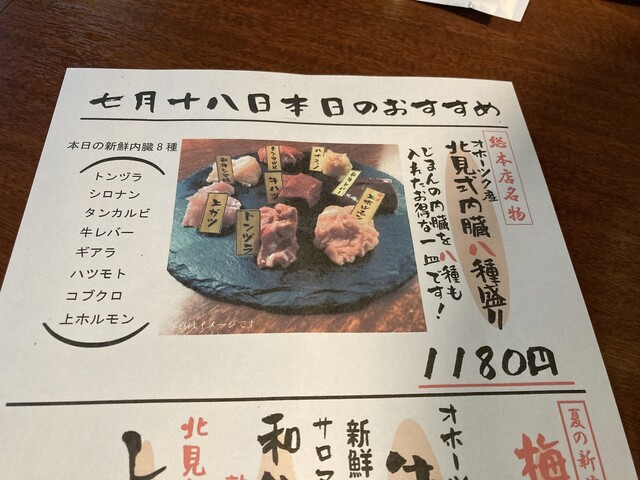 七月十八日本日のおすすめ
総本店名物
オホーツク産
北見式内臓八種盛り
じまんの内臓を八種も
入れたお得な一皿です!
本日の新鮮内臓8種
トンヅラ
シロナン
タンカルビ
牛レバー
ギアラ
ハツモト
コブクロ
上ホルモン
タンカルビ
ハナミノ
牛ハツ
上ホルモン
上ガツ
トンヅラ
イメージです
1180円
夏の新
梅
オホーツ
牛
新鮮
サロマ
和
北見